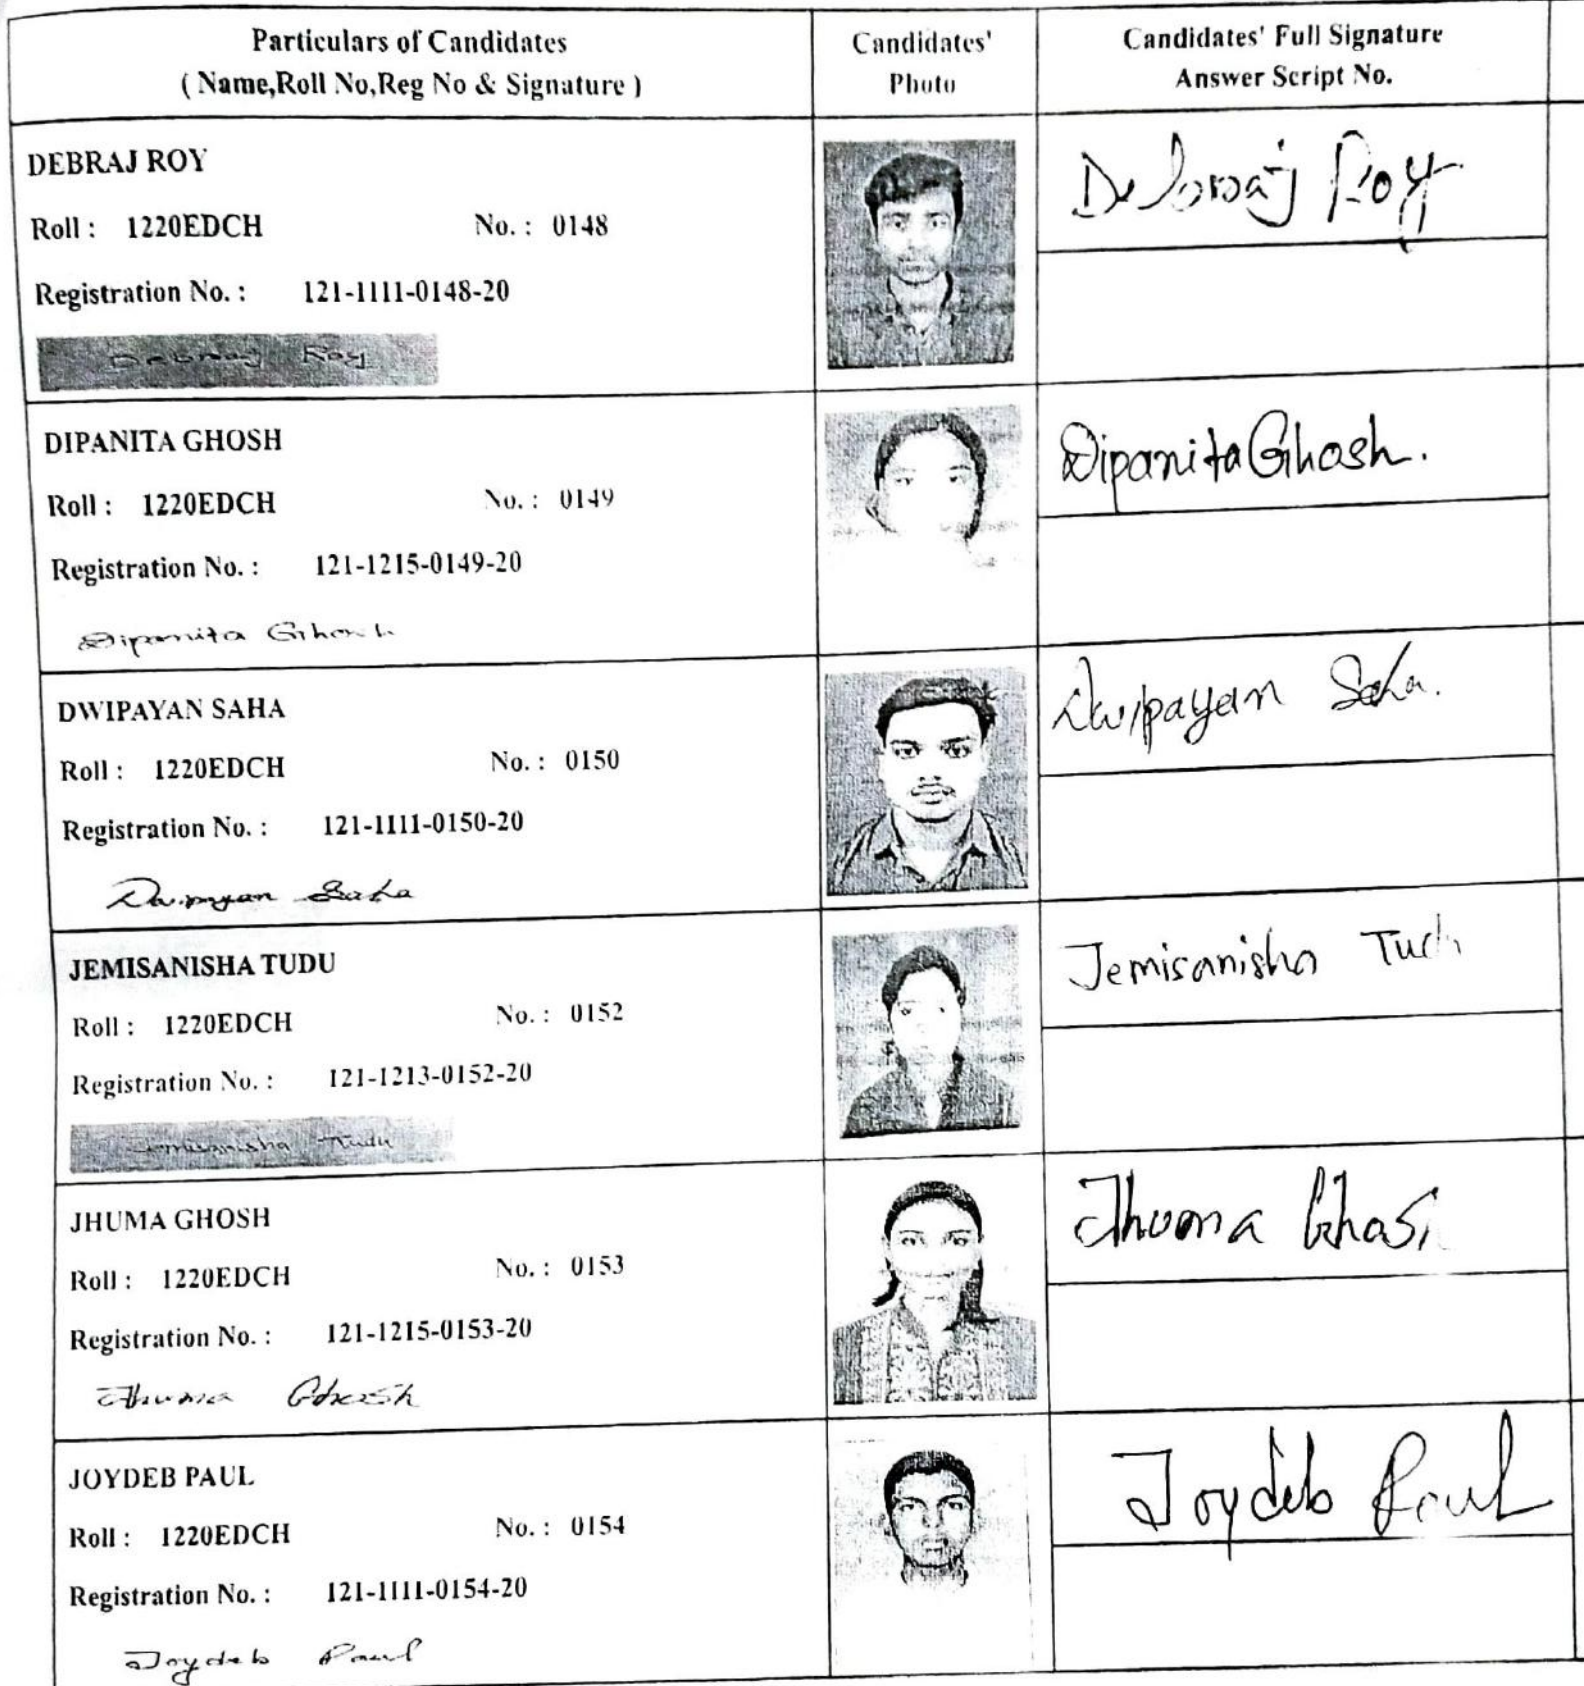 Particulars of Candidates
( Name,Roll No,Reg No & Signature )
Candidates'
Photo
Candidates' Full Signature
Answer Script No.
DEBRAJ ROY
Roll : 1220EDCH No. : 0148
Registration No. : 121-1111-0148-20
Debraj Roy
Debraj Roy
DIPANITA GHOSH
Roll : 1220EDCH No. : 0149
Registration No. : 121-1215-0149-20
Dipanita Ghosh
Dipanita Ghosh.
DWIPAYAN SAHA
Roll : 1220EDCH No. : 0150
Registration No. : 121-1111-0150-20
Dwipayan Saha
Dwipayan Saha.
JEMISANISHA TUDU
Roll : 1220EDCH No. : 0152
Registration No. : 121-1213-0152-20
Jemisanisha Tudu
Jemisanisha Tudu
JHUMA GHOSH
Roll : 1220EDCH No. : 0153
Registration No. : 121-1215-0153-20
Jhuma Ghosh
Jhuma Ghosh
JOYDEB PAUL
Roll : 1220EDCH No. : 0154
Registration No. : 121-1111-0154-20
Joydeb Paul
Joydeb Paul